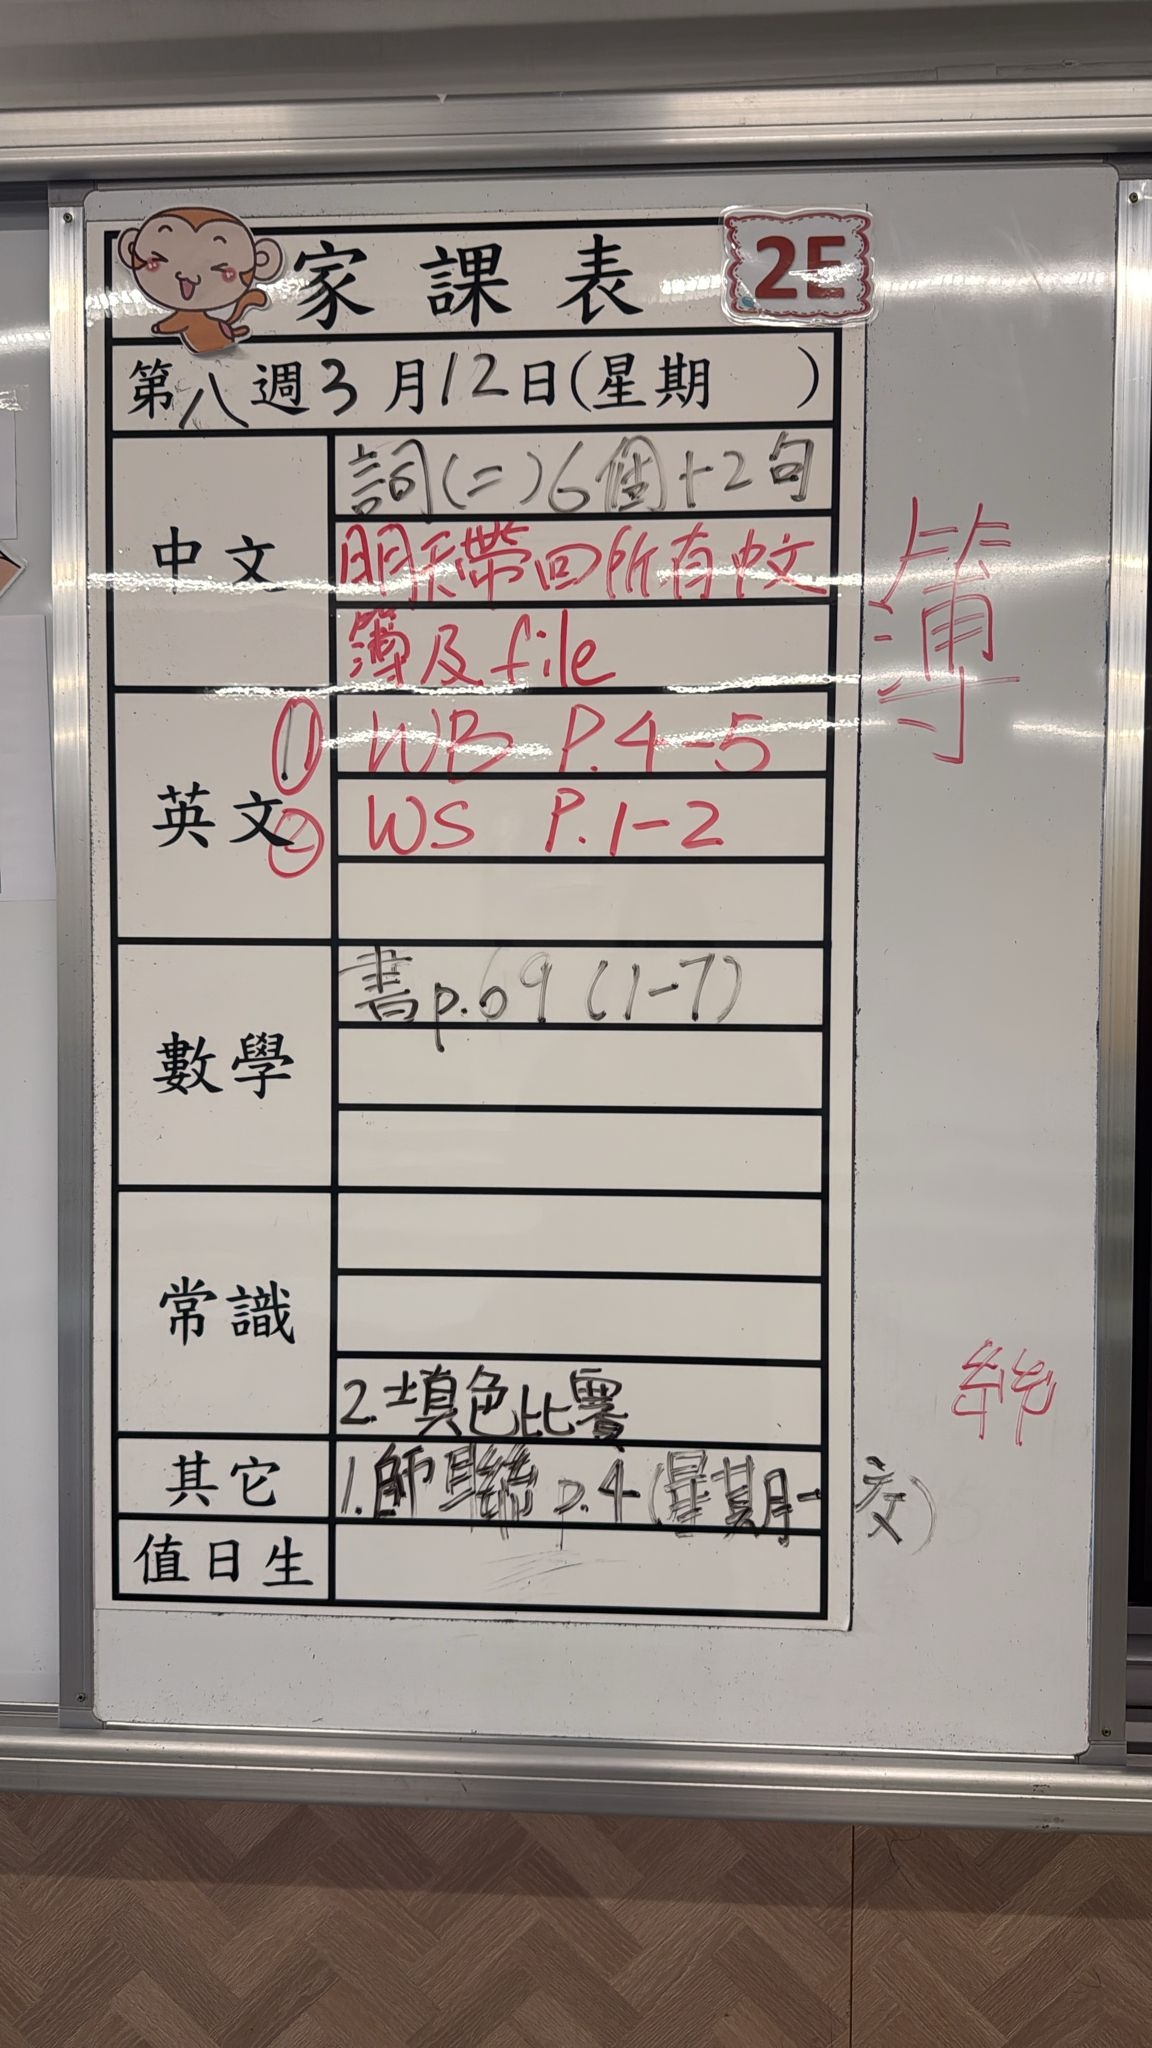 家課表 2E
第八週3月12日(星期 )
中文
詞(二)6個+2句
明天帶回所有中文
簿及file
簿
英文
① WB P.4-5
② WS P.1-2
數學
書p.69 (1-7)
常識
2.填色比賽
其它
1.師聯p.4(星期一交)
值日生